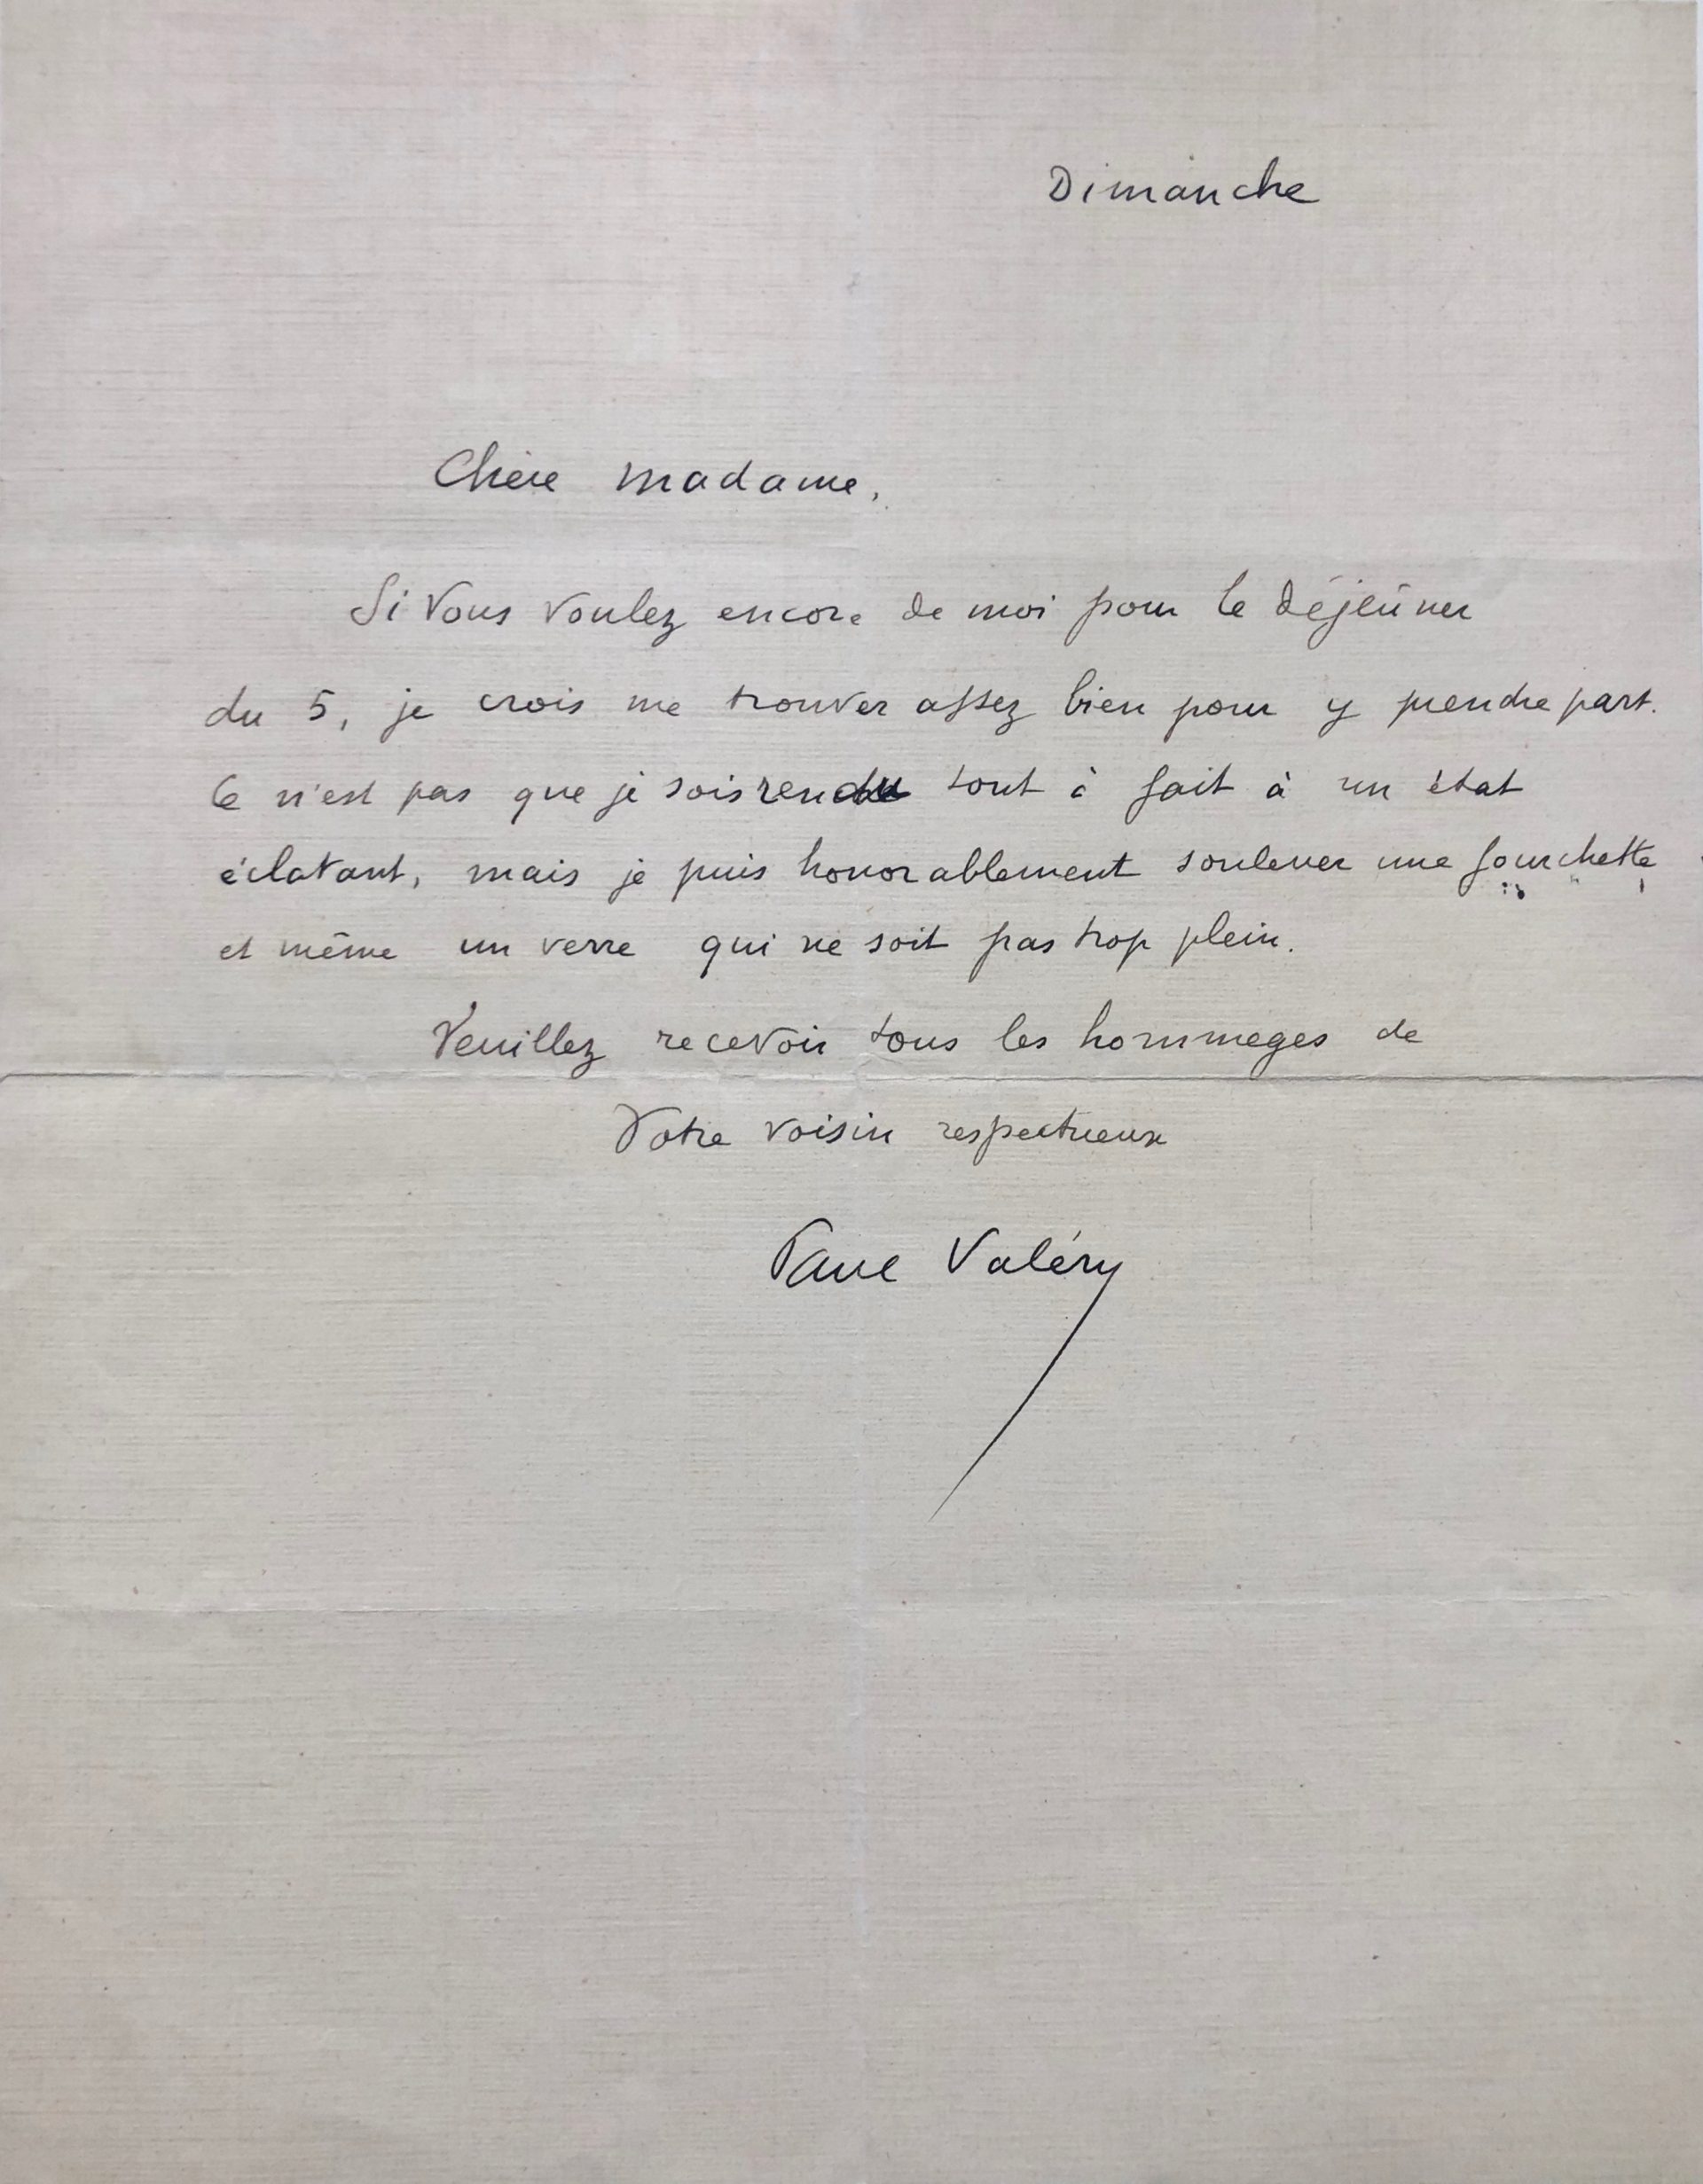 Dimanche
Chère Madame,
Si Vous Voulez encore de moi pour le déjeûner
du 5, je crois me trouver assez bien pour y prendre part.
Ce n'est pas que je sois rendu tout à fait à un état
éclatant, mais je puis honorablement soulever une fourchette
et même un verre qui ne soit pas trop plein.
Veuillez recevoir tous les hommages de
Votre voisin respectueux
Paul Valéry